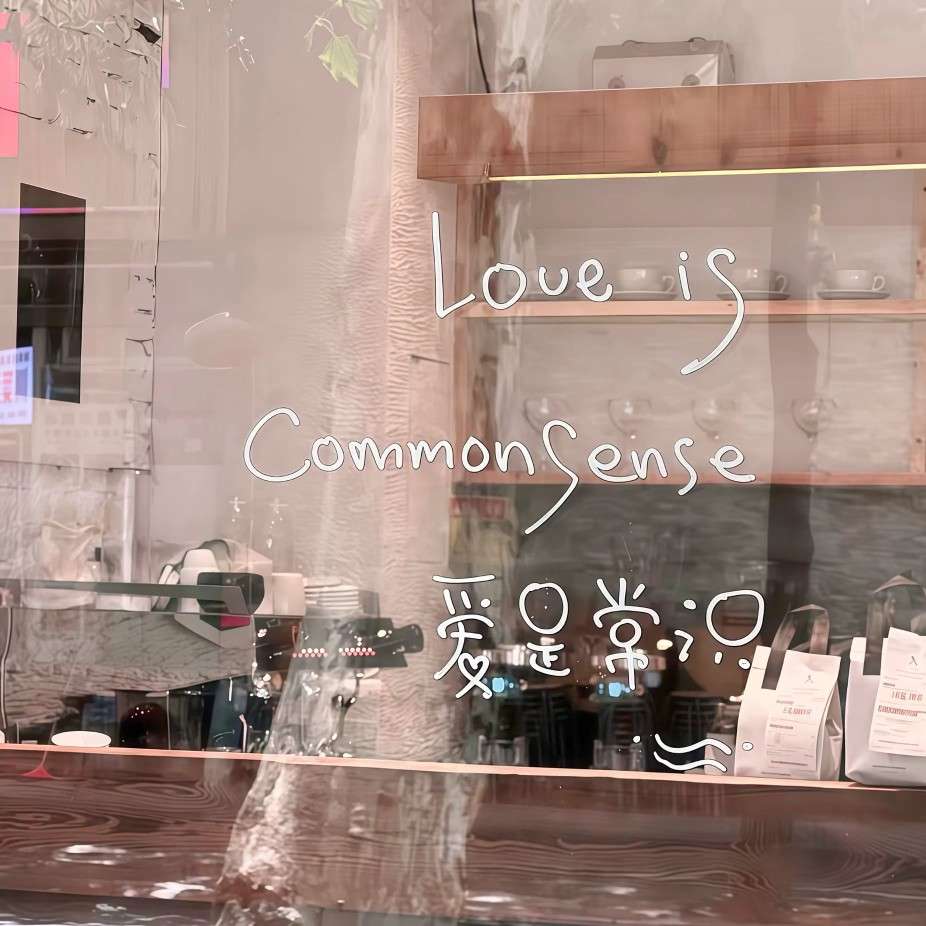 Love is
CommonSense
爱是常识